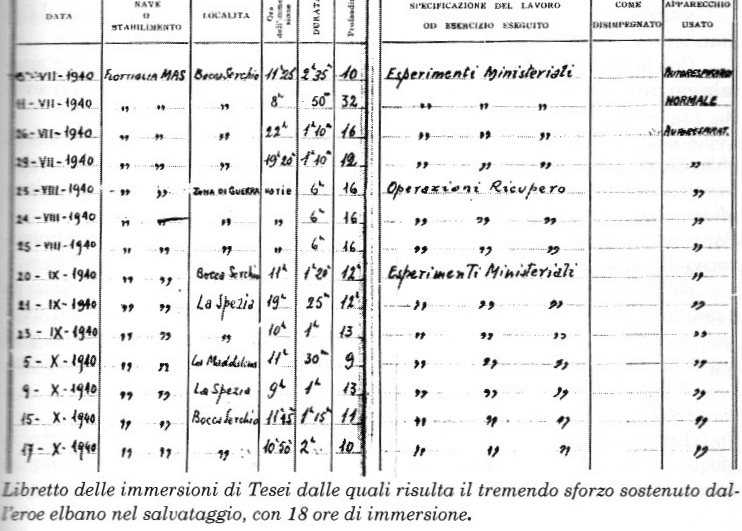 DATA NAVE O STABILIMENTO LOCALITA Ora dell'imme sione DURATA Profondi SPECIFICAZIONE DEL LAVORO OD ESERCIZIO ESEGUITO COME DISIMPEGNATO APPARECCHIO USATO
VII-1940 FLOTTIGLIA MAS Bocca Serchio 11h25 2h35m 10 Esperimenti Ministeriali
11-VII-1940 " " " 8h 50m 32 " " " NORMALE
26-VII-1940 " " " 22h 1h10m 16 " " " AUTORESPIRAT.
29-VII-1940 " " " 19h20m 1h10m 12 " " " "
23-VIII-1940 " " ZONA DI GUERRA notte 6h 16 Operazioni Ricupero "
24-VIII-1940 " " " " 6h 16 " " " "
25-VIII-1940 " " " " 6h 16 " " " "
20-IX-1940 " " Bocca Serchio 11h 1h20m 12 Esperimenti Ministeriali "
21-IX-1940 " " La Spezia 19h 25m 12 " " " "
23-IX-1940 " " " 10h 1h 13 " " " "
5-X-1940 " " La Maddalena 11h 30m 9 " " " "
9-X-1940 " " La Spezia 9h 1h 13 " " " "
15-X-1940 " " Bocca Serchio 11h45m 1h15m 11 " " " "
17-X-1940 " " " 10h50m 2h 10 " " " "
Libretto delle immersioni di Tesei dalle quali risulta il tremendo sforzo sostenuto dal-
l'eroe elbano nel salvataggio, con 18 ore di immersione.